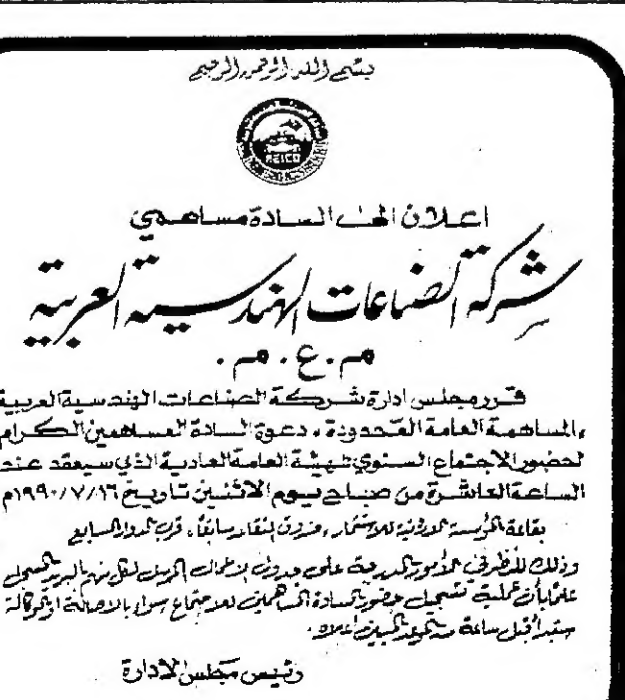 بسم الله الرحمن الرحيم
REICO
اعلان الى السادة مساهمي
شركة الصناعات الهندسية العربية
م.ع.م.
قرر مجلس ادارة شركة الصناعات الهندسية العربية
المساهمة العامة المحدودة، دعوة السادة المساهمين الكرام
لحضور الاجتماع السنوي للهيئة العامة العادية الذي سيعقد عند
الساعة العاشرة من صباح يوم الاثنين تاريخ ١٩٩٠/٧/١٦م
بقاعة المؤسسة الاردنية للاستثمار، صندوق التقاعد سابقاً، قرب الدوار السابع
وذلك للنظر في الأمور المدرجة على جدول الاعمال المرسل لكل منهم بالبريد المسجل
علماً بأن عملية تسجيل حضور السادة المساهمين للاجتماع سواء بالاصالة او الوكالة
ستبدأ قبل ساعة من الموعد المبين اعلاه.
رئيس مجلس الادارة